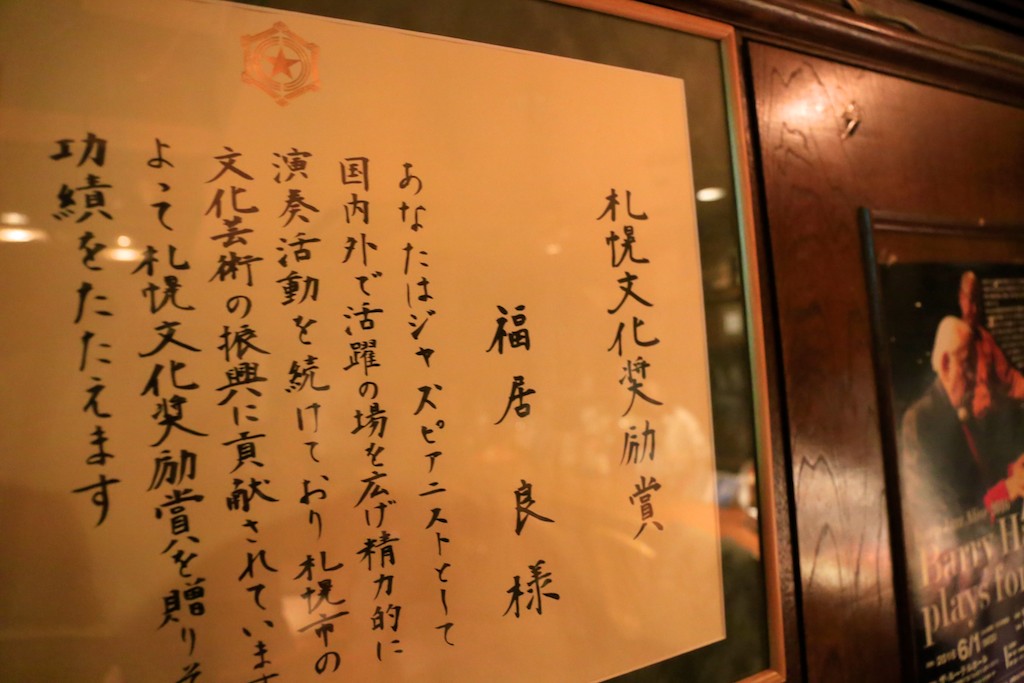 札幌文化奨励賞
福居良様
あなたはジャズピアニストとして
国内外で活躍の場を広げ精力的に
演奏活動を続けており札幌市の
文化芸術の振興に貢献されています
よって札幌文化奨励賞を贈りそ
功績をたたえます
Barry H
plays fo
6/1